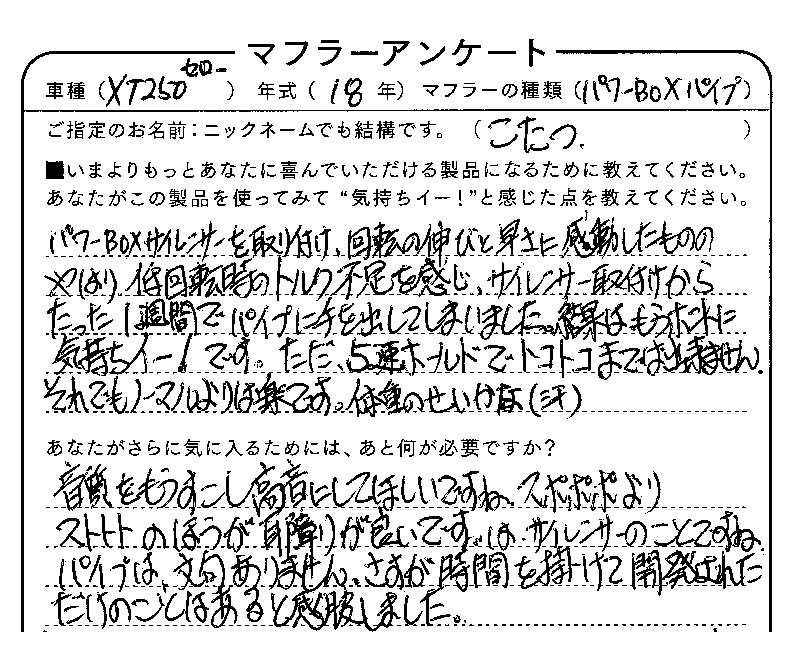 マフラーアンケート
車種（XT250 セロー） 年式（18年）マフラーの種類（パワーBOXパイプ）
ご指定のお名前：ニックネームでも結構です。（こたつ.）
■いまよりもっとあなたに喜んでいただける製品になるために教えてください。
あなたがこの製品を使ってみて“気持ちイー！”と感じた点を教えてください。
パワーBOXサイレンサーを取り付け、回転の伸びと早さに感動したものの
やはり低回転時のトルク不足を感じ、サイレンサー取付けから
たった1週間でパイプに手を出してしまいました。結果はもうホントに
気持ちイー！です。ただ、5速ホールドでトコトコまでは出来ません.
それでもノーマルよりは楽です。体重のせいかな（汗）
あなたがさらに気に入るためには、あと何が必要ですか？
音質をもうすこし高音にしてほしいですね、スポポポより
ストトトのほうが耳障りが良いです。は、サイレンサーのことですね.
パイプは、文句ありません、さすが時間を掛けて開発された
だけのことはあると感服しました。